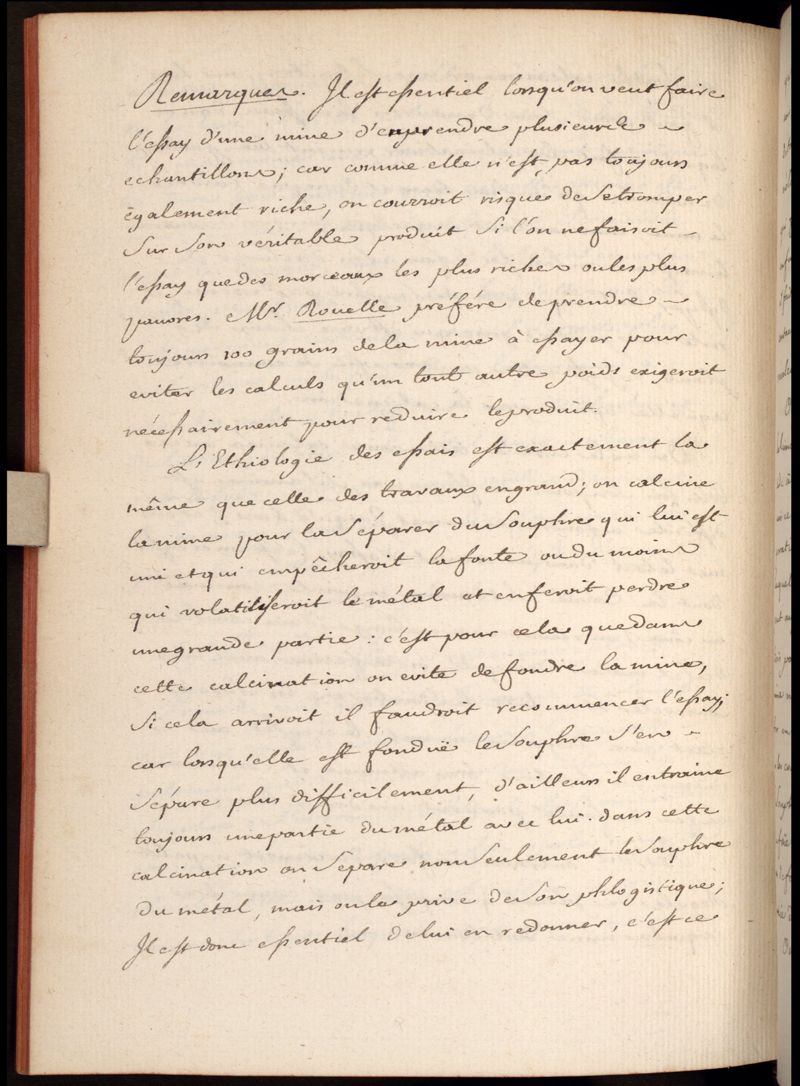 Remarques. Il est essentiel lorsqu'on veut faire
l'essay d'une mine d'en prendre plusieurs
echantillons; car comme elle n'est pas toujours
également riche, on courroit risque de se tromper
sur son véritable produit si l'on ne faisoit
l'essay que des morceaux les plus riches ou les plus
pauvres. Mr. Rouelle préfére de prendre
toujours 100 grains de la mine à essayer pour
eviter les calculs qu'un tout autre poids exigeroit
nécessairement pour reduire le produit.
L'Ethiologie des essais est exactement la
même que celle des travaux en grand; on calcine
la mine pour la séparer du souphre qui lui est
uni et qui empêcheroit la fonte ou du moins
qui volatiliseroit le métal et en feroit perdre
une grande partie: c'est pour cela que dans
cette calcination on evite de fondre la mine,
si cela arrivoit il faudroit recommencer l'essay;
car lorsqu'elle est fonduë le souphre s'en
sépare plus difficilement, d'ailleurs il entraine
toujours une partie du métal avec lui. dans cette
calcination on separe non seulement le souphre
du métal, mais on la prive de son phlogistique;
Il est donc essentiel de lui en redonner, c'est ce